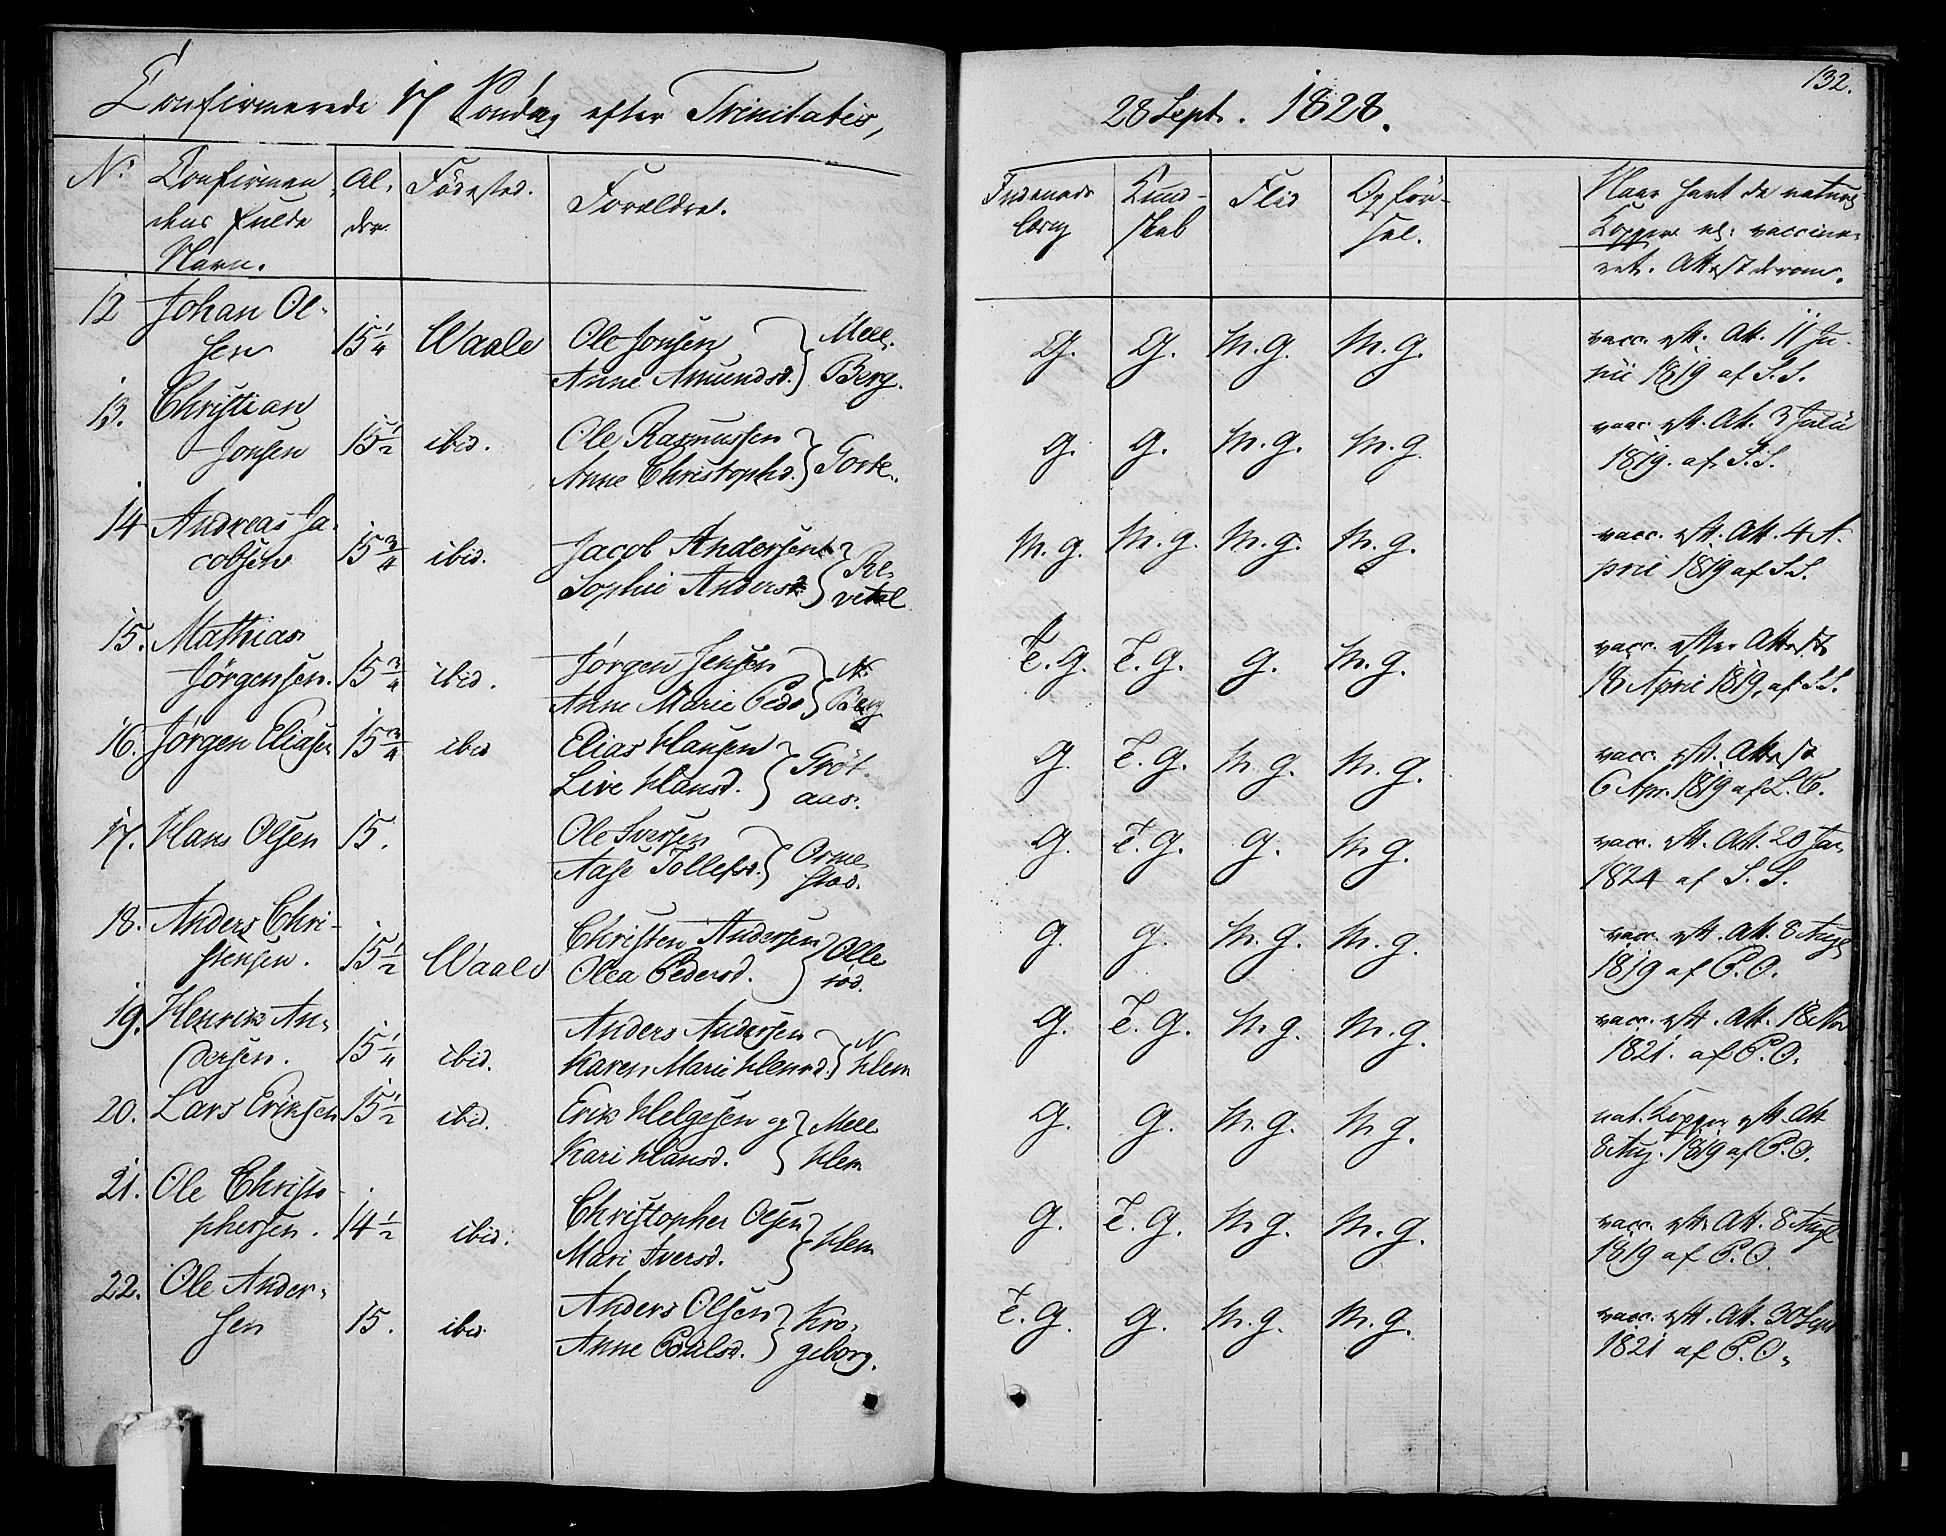 132.
Confirmerede 17 Søndag efter Trinitatis,
28 Sept. 1828.
No Confirman- Al- Fødested. Forældre.
dens fulde der
Navn.
Indenads- Kund- Flid Opfør-
læsn skab sel.
Naar havt de naturl
Kopper el. vaccine-
ret. Attest derom.
12 Johan Ol-
sen 15 1/4 Waale Ole Jonsen
Anne Amundsd. } Mell. Berg. G. G. M. G. M. G. vacc. eft. Att. 11 Ju-
nii 1819 af S. S.
13. Christian
Jonsen 15 1/2 ibid. Ole Rasmussen
Anne Christophd. } G. G. M. G. M. G. vacc. eft. Att. 3 Julii
1819. af S. S.
14 Andreas Ja-
cobsen 15 3/4 ibid. Jacob Andersen
Sophie Andersd } Re-
vetal M. G. M. G. M. G. M. G. vacc. eft. Att. 4 A-
pril 1819 af S. S.
15. Mathias
Jørgensen. 15 3/4 ibid. Jørgen Jensen
Anne Marie Pedd } N. Berg T. G. T. G. G. M. G. vacc. efter Attest
18 April 1819, af S. S.
16. Jørgen Eliasen 15 3/4 ibid Elias Hansen
Live Hansd. } Grøt-
aas. G. T. G. M. G. M. G. vacc. eft. Attest
6 Apr. 1819 af
17. Hans Olsen 15. Ole Iversen
Aase Tollefsd. } Orme-
stad. G. T. G. G. M. G. vacc. eft. Att. 20 Jan
1824 af S. S.
18. Anders Chri-
stensen. 15 1/2 Waale Christen Andersen
Olea Pedersd. } Olle-
rød. G. G. M. G. M. G. vacc. eft. Att. 8 Aug
1819 af P. O.
19. Henrik An-
dersen. 15 1/4 ibid. Anders Andersen
Karen Marie Henrd. } N Hem G. T. G. M. G. M. G. vacc. eft. Att. 18 Nov
1821. af P. O.
20. Lars Eriksen 15 1/2 ibid. Erik Helgesen og
Kari Hansd. } Mell Hem G. G. M. G. M. G. nat. Kopper eft. Att
8 Aug. 1819 af P. O.
21. Ole Christo-
phersen. 14 1/2 ibid. Christopher Olsen
Mari Iversd. } Hem G. T. G. M. G. M. G. vacc. eft. Att. 8 Aug
1819 af P. O.
22. Ole Ander-
sen 15. ibid. Anders Olsen
Anne Poulsd. } Kro-
geborg. T. G. G. M. G. M. G. vacc. eft. Att. 30 Sept
1821 af P. O.